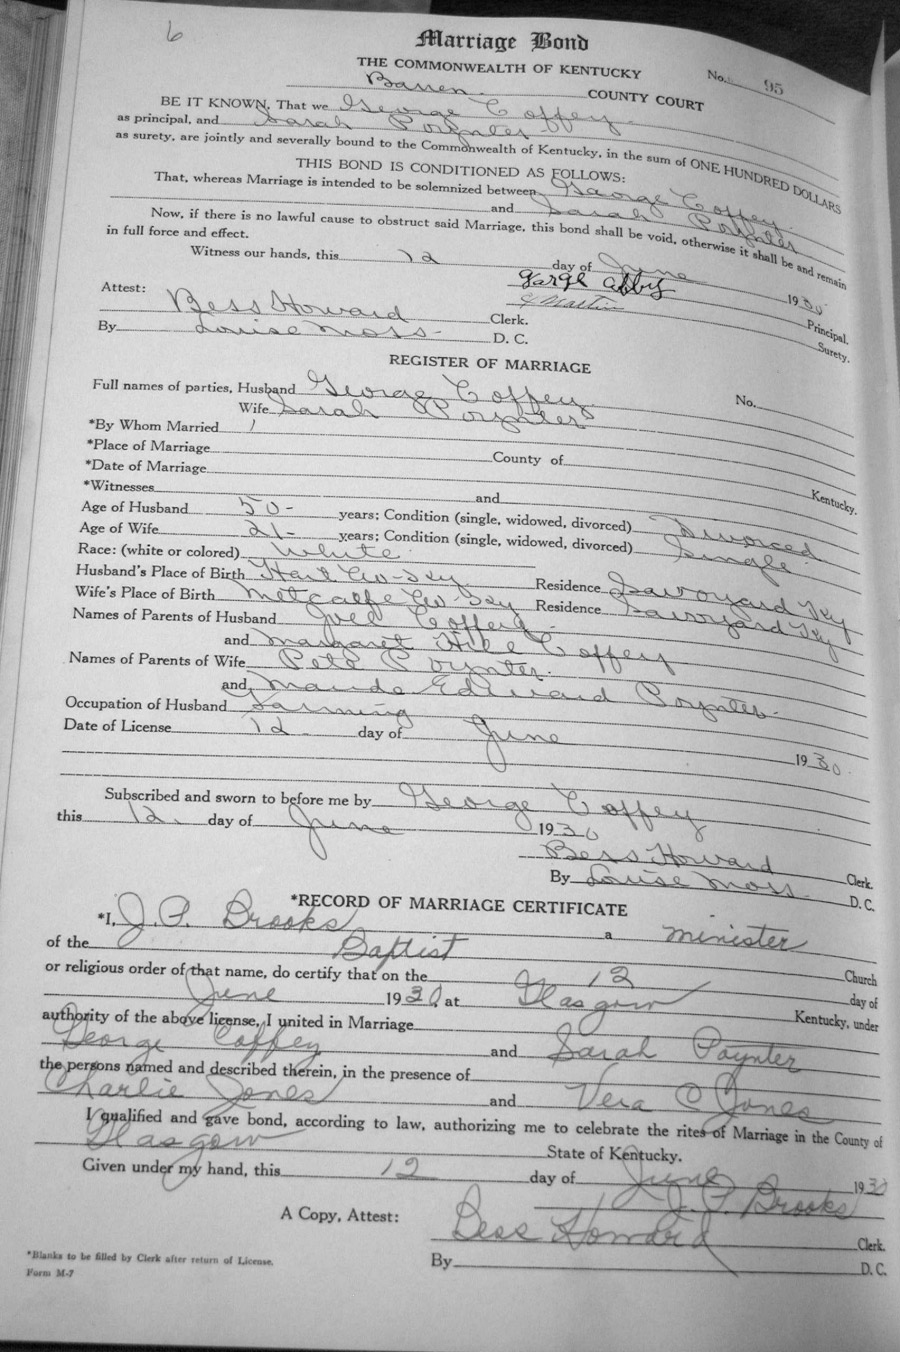 6
Marriage Bond
THE COMMONWEALTH OF KENTUCKY
No. 95
Barren COUNTY COURT
BE IT KNOWN, That we George Coffey
as principal, and Sarah Poynter
as surety, are jointly and severally bound to the Commonwealth of Kentucky, in the sum of ONE HUNDRED DOLLARS
THIS BOND IS CONDITIONED AS FOLLOWS:
That, whereas Marriage is intended to be solemnized between George Coffey
and Sarah Poynter
Now, if there is no lawful cause to obstruct said Marriage, this bond shall be void, otherwise it shall be and remain
in full force and effect.
Witness our hands, this 12 day of June 1930
Principal.
C Martin Surety.
Attest: Bess Howard Clerk.
By Louise Moss D. C.
REGISTER OF MARRIAGE
Full names of parties, Husband George Coffey No.
Wife Sarah Poynter
*By Whom Married
*Place of Marriage County of Kentucky.
*Date of Marriage
*Witnesses and
Age of Husband 50- years; Condition (single, widowed, divorced) Divorced
Age of Wife 21- years; Condition (single, widowed, divorced) Single
Race: (white or colored) White
Husband's Place of Birth Hart Co-Ky Residence Savoyard Ky
Wife's Place of Birth Metcalfe Co-Ky Residence Savoyard Ky
Names of Parents of Husband Joel Coffey
and Margaret Coffey
Names of Parents of Wife Pete Poynter
and Maude Edward Poynter
Occupation of Husband Farming
Date of License 12 day of June 1930
Subscribed and sworn to before me by George Coffey
this 12 day of June 1930
Bess Howard Clerk.
By Louise Moss D. C.
*RECORD OF MARRIAGE CERTIFICATE
*I, J.P. Brooks a minister
of the Baptist Church
or religious order of that name, do certify that on the 12 day of
June 1930, at Glasgow Kentucky, under
authority of the above license, I united in Marriage
George Coffey and Sarah Poynter
the persons named and described therein, in the presence of
Charlie Jones and Vera C Jones
I qualified and gave bond, according to law, authorizing me to celebrate the rites of Marriage in the County of
Glasgow State of Kentucky.
Given under my hand, this 12 day of June 1930
J. P. Brooks
A Copy, Attest: Bess Howard Clerk.
By D. C.
*Blanks to be filled by Clerk after return of License.
Form M-7